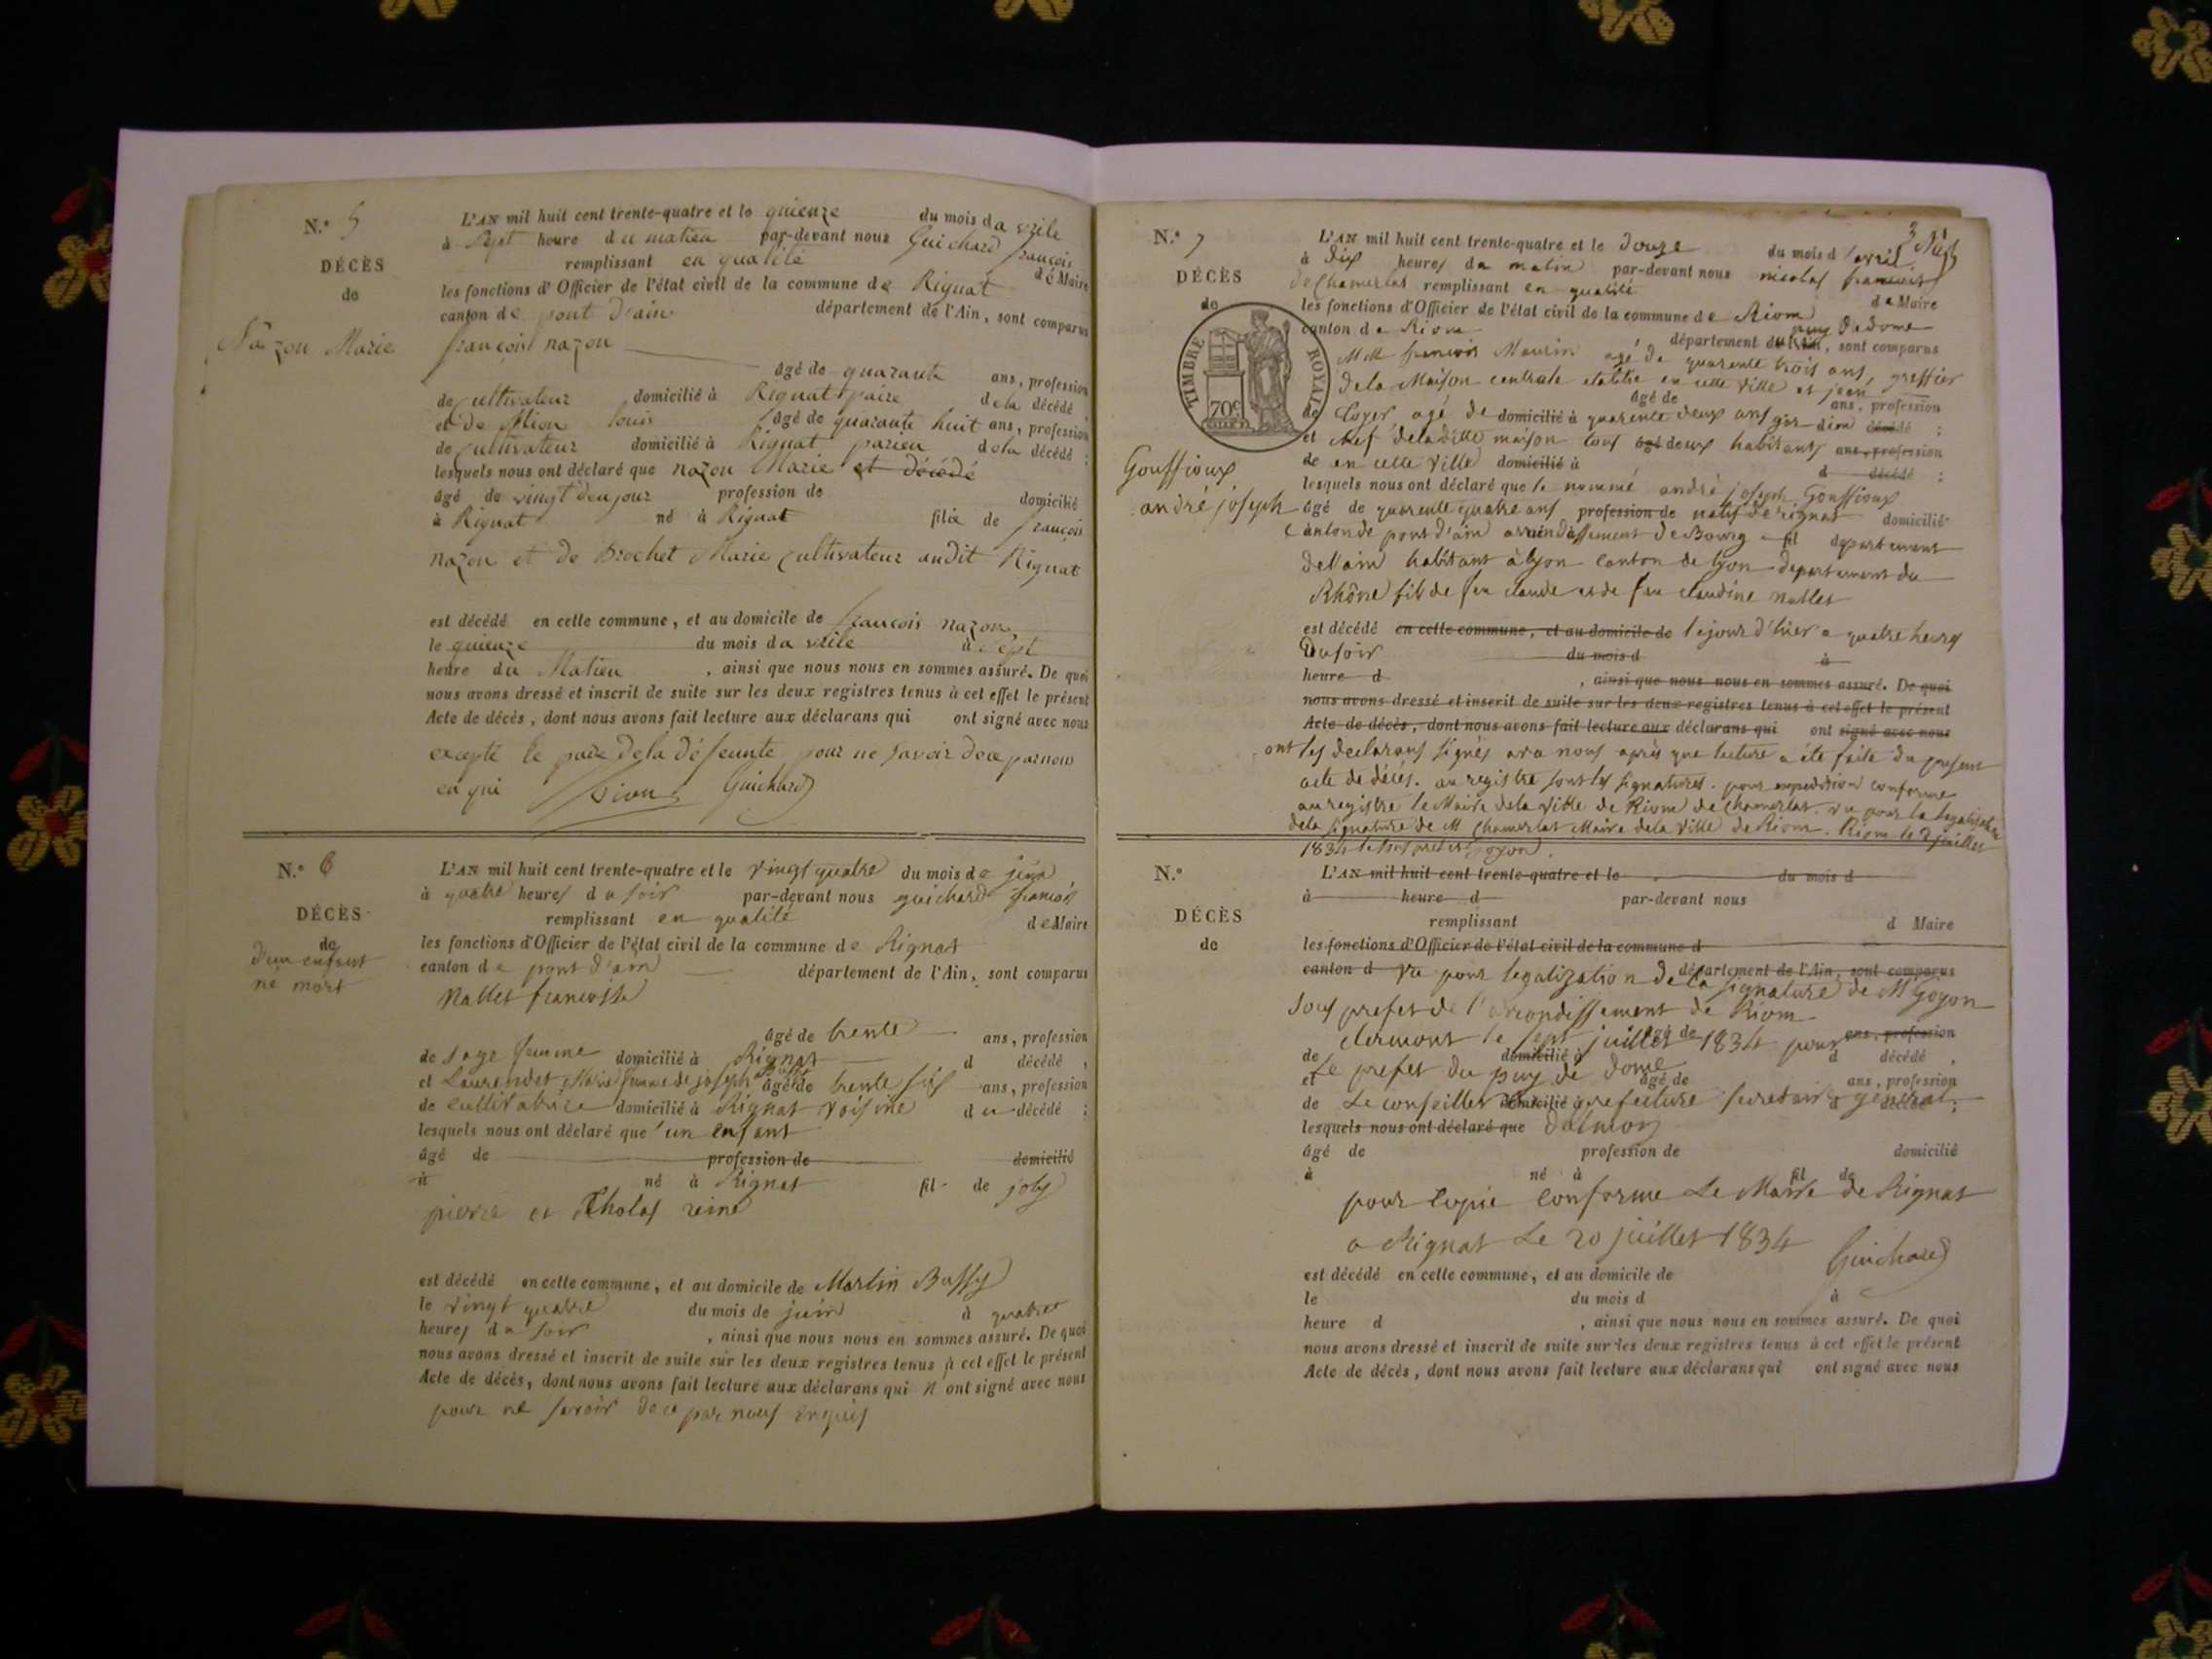 N.° 5
DÉCÈS
de
Nazon Marie
L'AN mil huit cent trente-quatre et le quienze du mois da vrile
à Sept heure du matieu par-devant nous Guichard françois
remplissant en qualité de Maire
les fonctions d'Officier de l'état civil de la commune de Rignat
canton de pont d'ain département de l'Ain, sont comparus
françois nazon
âgé de quarante ans, profession
de cultivateur domicilié à Rignat paire dela décédé,
et de Sion louis âgé de quarante huit ans, profession
de cultivateur domicilié à Rignat parien dela décédé :
lesquels nous ont déclaré que nazon Marie et décédé
âgé de vingt deu jour profession de domicilié
à Rignat né à Rignat fille de françois
nazon et de Brochet Marie cultivateur audit Rignat
est décédé en cette commune, et au domicile de françois nazon
le quienze du mois da vrile à Sept
heure du Matieu , ainsi que nous nous en sommes assuré. De quoi
nous avons dressé et inscrit de suite sur les deux registres tenus à cet effet le présent
Acte de décès, dont nous avons fait lecture aux déclarans qui ont signé avec nous
excepté le paire dela défeunte pour ne savoir dece par nous
en qui Sion Guichard
N.° 6
DÉCÈS
de
d'un enfant
né mort
L'AN mil huit cent trente-quatre et le vingt quatre du mois de juin
à quatre heures du soir par-devant nous guichard françois
remplissant en qualité de Maire
les fonctions d'Officier de l'état civil de la commune de Rignat
canton de pont d'ain département de l'Ain, sont comparus
Nallet françoise
âgé de trente ans, profession
de sage femme domicilié à Rignat d décédé,
et Laurendet Marie femme de joseph âgé de trente six ans, profession
de cultivatrice domicilié à Rignat voisine du décédé :
lesquels nous ont déclaré que un enfant
âgé de profession de domicilié
à né à Rignat fil de joly
pierre et Cholas reine
est décédé en cette commune, et au domicile de Martin Bussy
le vingt quatre du mois de juin à quatre
heures du soir , ainsi que nous nous en sommes assuré. De quoi
nous avons dressé et inscrit de suite sur les deux registres tenus à cet effet le présent
Acte de décès, dont nous avons fait lecture aux déclarans qui n ont signé avec nous
pour ne savoir dece par nous enquis
3
N.° 7
DÉCÈS
de
TIMBRE ROYAL
70c
Gouffioux
andré joseph
L'AN mil huit cent trente-quatre et le douze du mois d'avril
à dix heures du matin par-devant nous nicolas françois
de Chamerlat remplissant en qualité de Maire
les fonctions d'Officier de l'état civil de la commune de Riom
canton de Riom département du puy de dome, sont comparus
MM françois Maurin agé de quarente trois ans, greffier
dela Maison centrale etablie en cette ville et jean
âgé de ans, profession
de Coyer agé de domicilié à quarente deux ans gardien décédé ;
et chef dela ditte maison tous âgé deux habitants ans, profession
de en cette ville domicilié à d décédé :
lesquels nous ont déclaré que le nommé andré joseph Gouffioux
âgé de quarente quatre ans profession de natif de rignat domicilié
canton de pont d'ain arrondissement de Bourg fil departement
de l'ain habitant à lyon canton de lyon departement du
Rhône fils de feu claude et de feu claudine nallet
est décédé en cette commune, et au domicile de le jour d'hier a quatre heures
du soir du mois d à
heure d , ainsi que nous nous en sommes assuré. De quoi
nous avons dressé et inscrit de suite sur les deux registres tenus à cet effet le présent
Acte de décès, dont nous avons fait lecture aux déclarans qui ont signé avec nous
ont les declarans signés avec nous après que lecture a été faite du present
acte de décés. au registre sont les signatures. pour expedition conforme
au registre le Maire dela ville de Riom de Chamerlat. vu pour la legalisation
dela signature de M Chamerlat Maire dela ville de Riom. Riom le 2 juillet
1834 le sous prefet Goyon.
N.°
DÉCÈS
de
L'AN mil huit cent trente-quatre et le du mois d
à heure d par-devant nous
remplissant d Maire
les fonctions d'Officier de l'état civil de la commune d
canton d vu pour legalization de la département de l'Ain, sont comparus
signature de M Goyon
sous prefet de l'arrondissement de Riom
clermont le sept juillet âgé de 1834 pour ans, profession
de domicilié à d décédé,
et Le prefet du puy de dome âgé de ans, profession
de Le conseiller domicilié à prefecture secretaire général d décédé ;
lesquels nous ont déclaré que
âgé de profession de domicilié
à né à fil de
pour copie conforme Le Maire de Rignat
a Rignat Le 20 juillet 1834 Guichard
est décédé en cette commune, et au domicile de
le du mois d à
heure d , ainsi que nous nous en sommes assuré. De quoi
nous avons dressé et inscrit de suite sur les deux registres tenus à cet effet le présent
Acte de décès, dont nous avons fait lecture aux déclarans qui ont signé avec nous